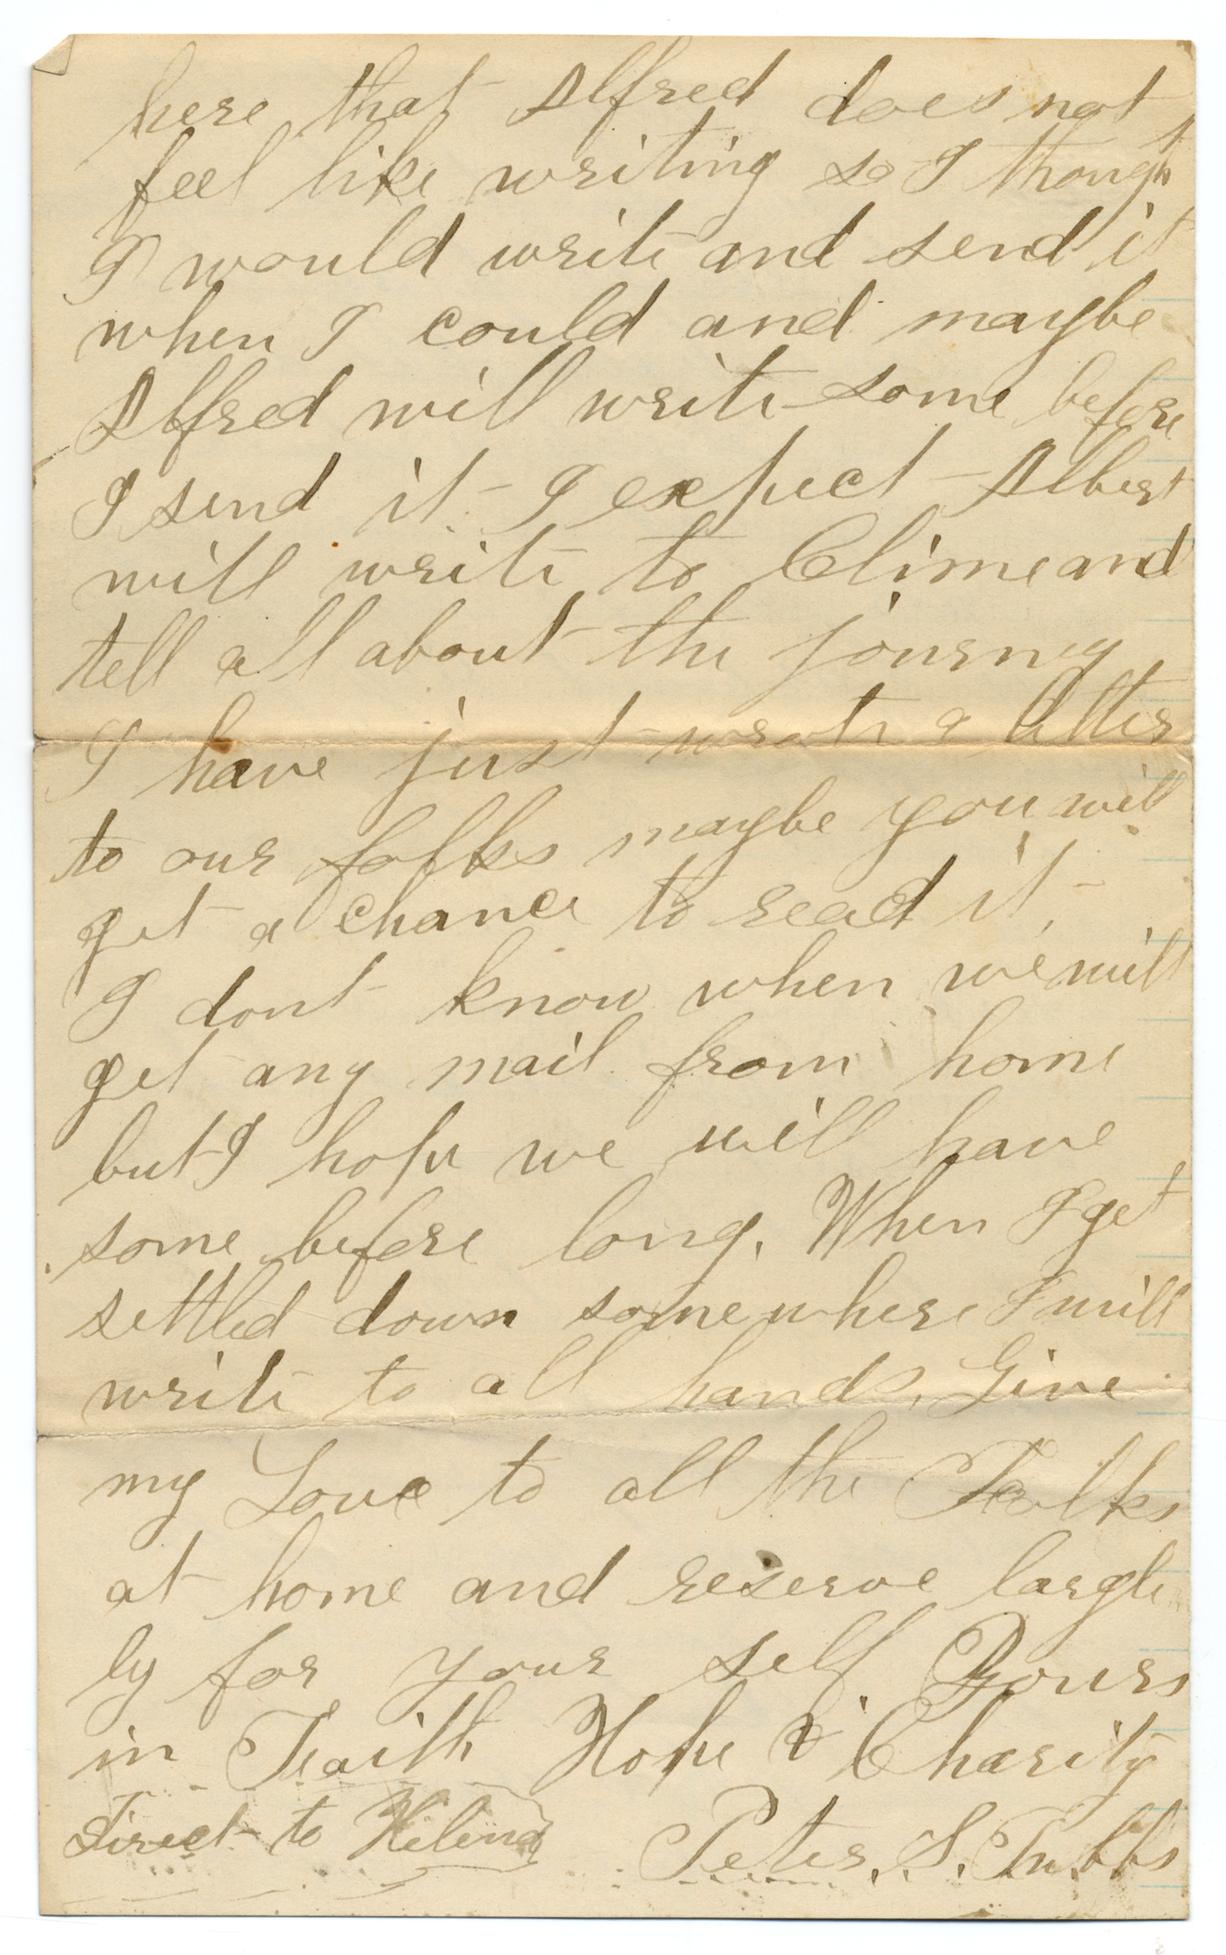 here that Alfred does not
feel like writing so I thought
I would write and send it
when I could and maybe
Alfred will write some before
I send it I expect Albert
will write to Clime and
tell all about the journey
I have just wrote a letter
to our folks maybe you will
get a chance to read it.
I dont know when we will
get any mail from home
but I hope we will have
some before long. When I get
settled down somewhere I will
write to all hands. Give
my Love to all the Folks
at home and reserve largle
ly for your self Yours
in Faith Hope & Charity
Direct to Helena Peter. S. Tubbs